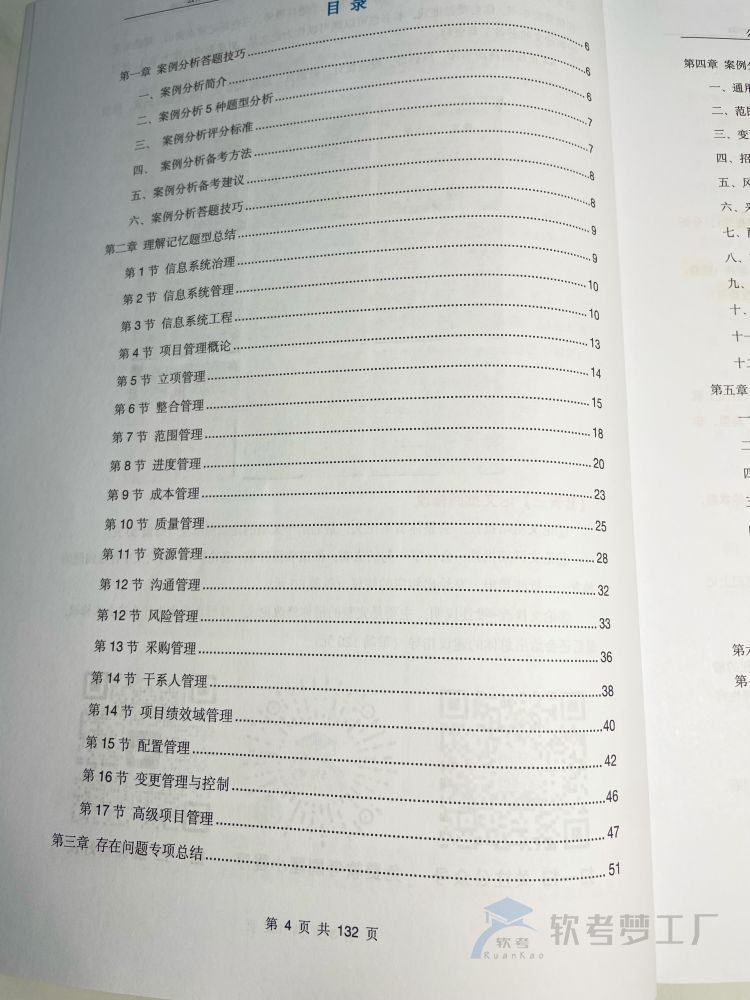 目 录
第一章 案例分析答题技巧 6
一、案例分析简介 6
二、案例分析 5 种题型分析 6
三、 案例分析评分标准 7
四、 案例分析备考方法 7
五、案例分析备考建议 8
六、案例分析答题技巧 8
第二章 理解记忆题型总结 9
第 1 节 信息系统治理 9
第 2 节 信息系统管理 10
第 3 节 信息系统工程 10
第 4 节 项目管理概论 13
第 5 节 立项管理 14
第 6 节 整合管理 15
第 7 节 范围管理 18
第 8 节 进度管理 20
第 9 节 成本管理 23
第 10 节 质量管理 25
第 11 节 资源管理 28
第 12 节 沟通管理 32
第 12 节 风险管理 33
第 13 节 采购管理 36
第 14 节 干系人管理 38
第 14 节 项目绩效域管理 40
第 15 节 配置管理 42
第 16 节 变更管理与控制 46
第 17 节 高级项目管理 47
第三章 存在问题专项总结 51
第 4 页 共 132 页
第四章 案例
一、通用
二、范
三、变
四、招
五、风
六、
七、
八、
九、
十、
十一
十二
第五章
一
二
四
三
第
第
软考
RuanKao
软考梦工厂